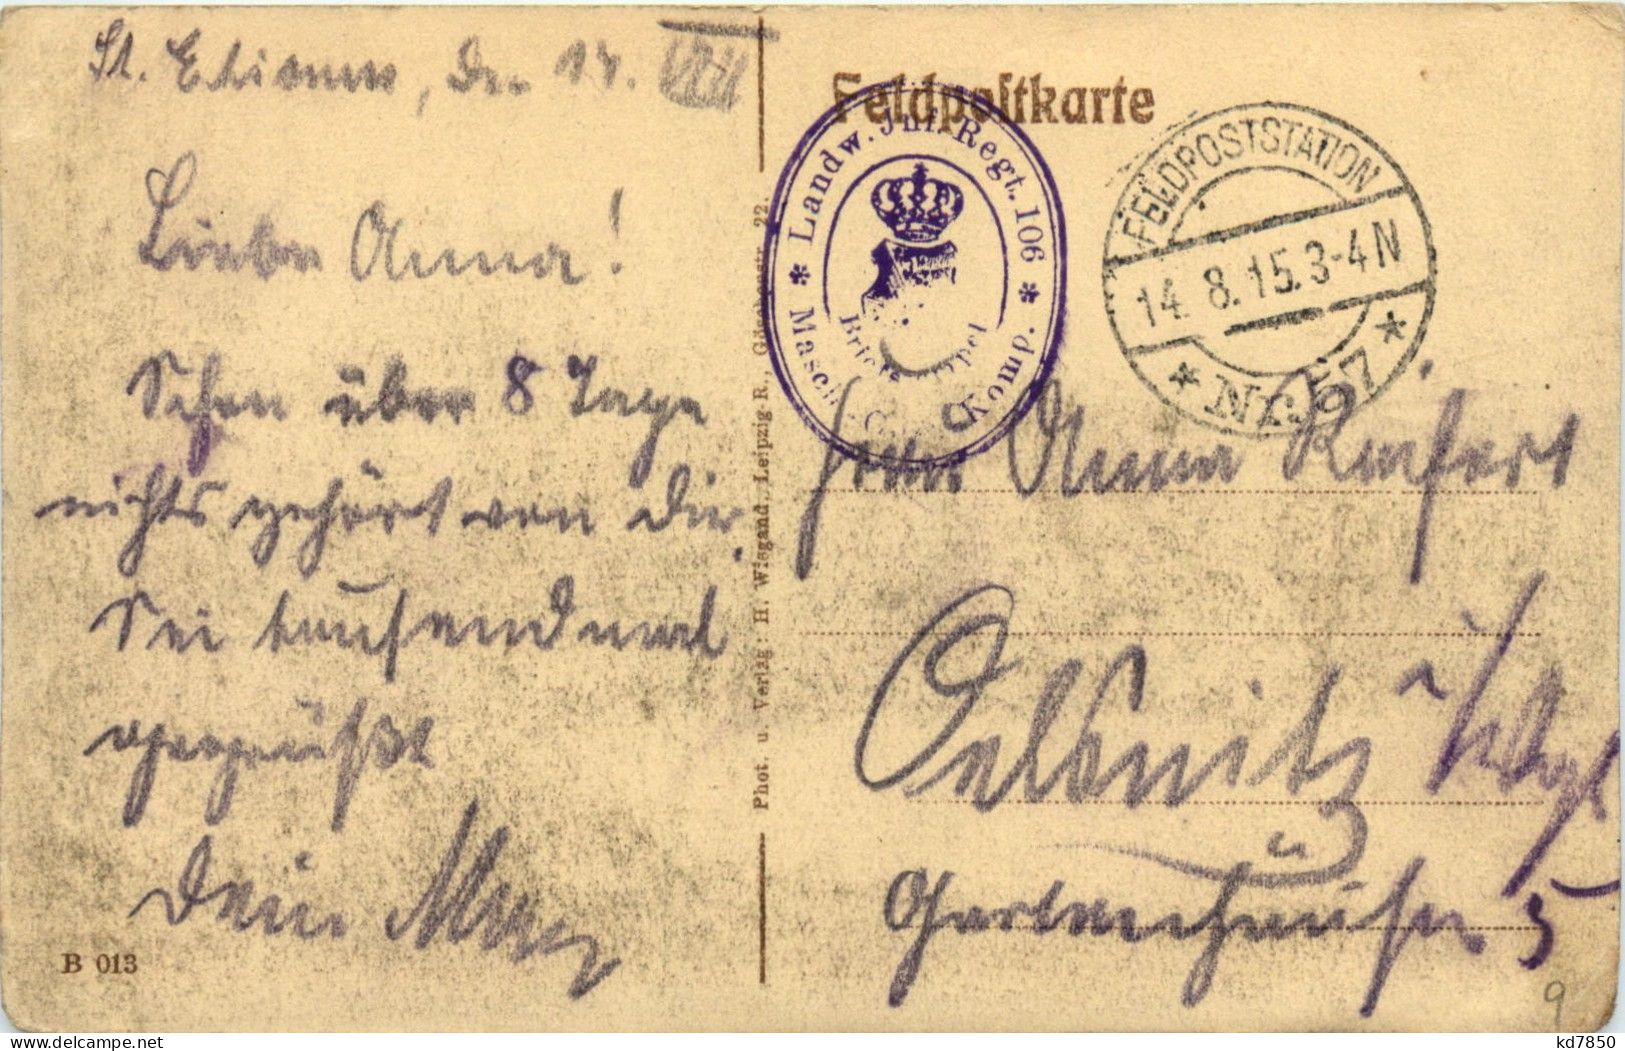 St. Etienne, den 14. VIII
Liebe Anna!
Schon über 8 Tage
nichts gehört von Dir.
Sei tausendmal
gegrüßt
Dein Max
B 013
Phot. u. Verlag: H. Wiegand, Leipzig R., 22.
Feldpostkarte
* Landw. Inf. Regt. 106 *
Masch. G. Komp.
Briefstempel
FELDPOSTSTATION
14.8.15.3-4N
* Nr. 57 *
Frau Anna Reifert
Oelsnitz i/Vogtl
Gartenhäuser 5
9
kd7850